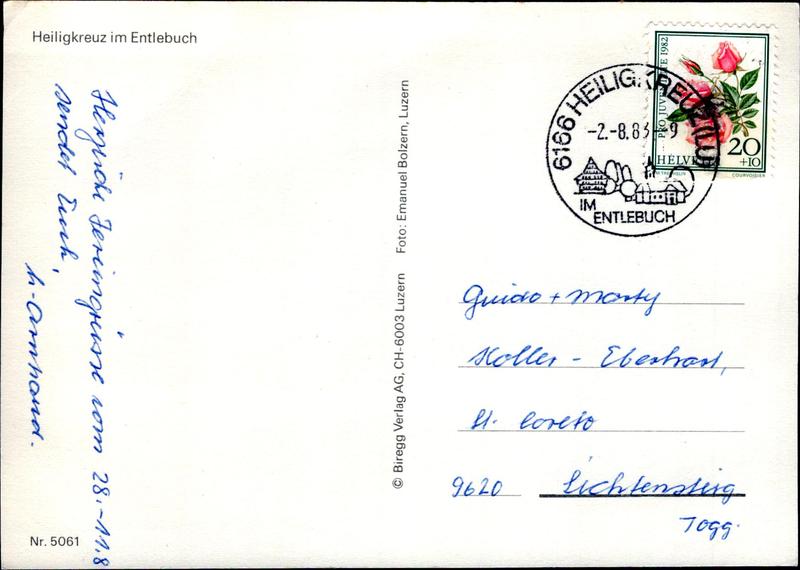 Heiligkreuz im Entlebuch
Herzliche Feriengrüsse vom 28.-11.8
sendet Euch,
Nr. 5061
© Biregg Verlag AG, CH-6003 Luzern Foto: Emanuel Bolzern, Luzern
6166 HEILIGKREUZ (LU)
-2.-8.83-9
IM
ENTLEBUCH
PRO JUVENTUTE 1982
HELVETIA
20
+10
COURVOISIER
Guido + Marty
Holler - Eberhart,
St. Loreto
9620 Lichtensteig
Togg.